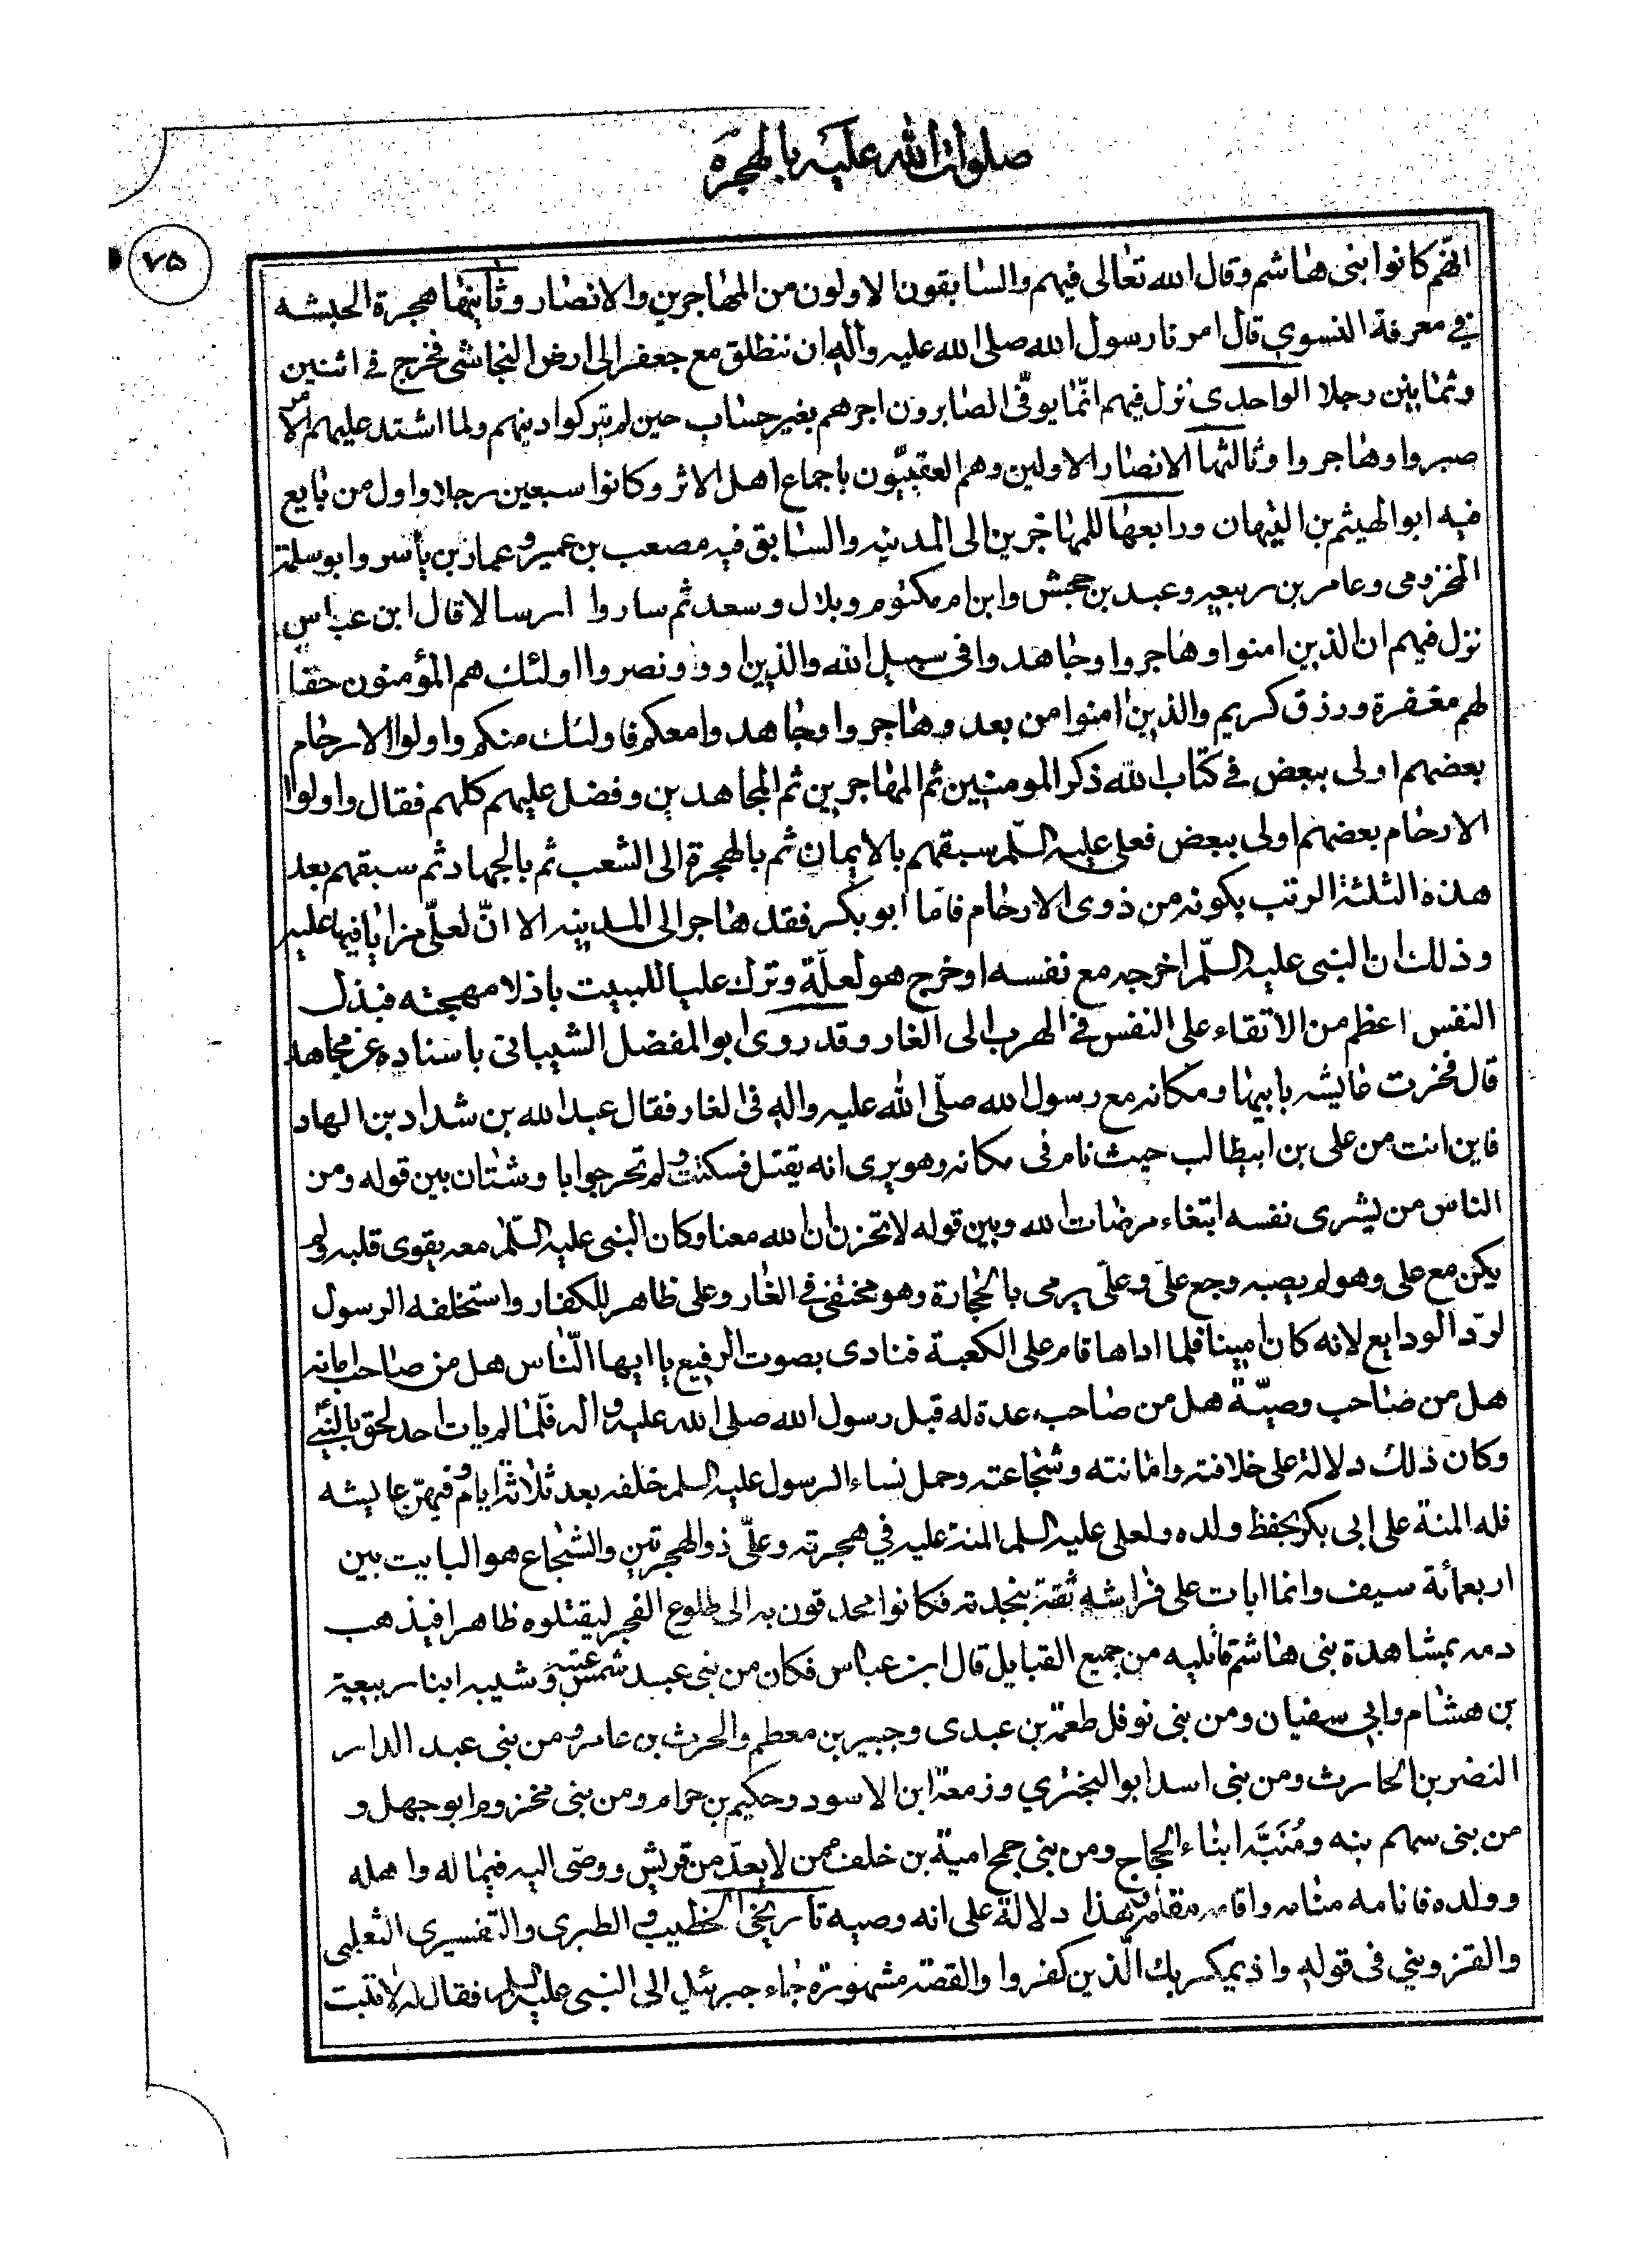 صلوات الله عليه بالهجرة
٧۵
انهم كانوا بنى هاشم وقال الله تعالى فيهم والسابقون الاولون من المهاجرين والانصار وثانيها هجرة الحبشه
في معرفة النسوي قال امرنا رسول الله صلى الله عليه واله ان ننطلق مع جعفر الى ارض النجاشى فخرج في اثنين
وثمانين رجلا الواحدى نزل فيهم انّما يوفّى الصابرون اجرهم بغير حساب حين لم يتركوا دينهم ولما اشتد عليهم الامر
صبروا وهاجروا وثالثها الانصار الاولين وهم العقبيّون باجماع اهل الاثر وكانوا سبعين رجلا واول من بايع
فيه ابو الهيثم بن التيهان ورابعها للمهاجرين الى المدينه والسابق فيه مصعب بن عمير و عمار بن ياسر وابو سلمة
المخزومى وعامر بن ربيعه وعبد بن جحش وابن ام مكتوم وبلال وسعد ثم ساروا ارسالا قال ابن عباس
نزل فيهم ان الذين امنوا وهاجروا وجاهدوا فى سبيل الله والذين اووو نصروا اولئك هم المؤمنون حقا
لهم مغفرة ورزق كريم والذين امنوا من بعد وهاجروا وجاهدوا معكم فاولئك منكم واولوا الارحام
بعضهم اولى ببعض في كتاب الله ذكر المومنين ثم المهاجرين ثم المجاهدين وفضل عليهم كلهم فقال واولوا
الارحام بعضهم اولى ببعض فعلى عليه السلم سبقهم بالايمان ثم بالهجرة الى الشعب ثم بالجهاد ثم سبقهم بعد
هذه الثلثة الرتب بكونه من ذوى الارحام فامّا ابو بكر فقد هاجر الى المدينه الا انّ لعلىّ مزايا فيها عليه
وذلك ان النبى عليه السلم اخرجه مع نفسه او خرج هو لعلّة وترك عليا للمبيت باذلا مهجته فبذل
النفس اعظم من الاتقاء على النفس في الهرب الى الغار وقد روى ابو المفضل الشيبانى باسناده عن مجاهد
قال فخرت عايشه بابيها ومكانه مع رسول الله صلّى الله عليه واله فى الغار فقال عبد الله بن شداد بن الهاد
فاين انت من على بن ابيطالب حيث نام فى مكانه وهو يرى انه يقتل فسكتت و لم تحر جوابا وشتان بين قوله ومن
الناس من يشرى نفسه ابتغاء مرضات الله وبين قوله لا تحزن ان الله معنا وكان النبى عليه السّلم معه يقوى قلبه ولم
يكن مع على وهو لم يصبه وجع علىّ و علىّ يرمى بالحجارة وهو مختفى في الغار وعلى ظاهر للكفار واستخلفه الرسول
لردّ الودايع لانه كان امينا فلما اداها قام على الكعبة فنادى بصوت الرفيع يا ايها النّاس هل من صاحب امانه
هل من صاحب وصيّة هل من صاحب عدة له قبل رسول الله صلى الله عليه و اله فلمّا لم يات احد لحق بالنبىّ
وكان ذلك دلالة على خلافته وامانته وشجاعته وحمل نساء الرسول عليه السلم خلفه بعد ثلاثة ايام و فيهنّ عايشه
فله المنة على ابى بكر بحفظ ولده ولعلى عليه السلم المنة عليه في هجرته وعلىّ ذو الهجرتين والشجاع هو البايت بين
اربعمائة سيف وانما ابات على فراشه ثقة بنجدته فكانوا محدقون به الى طلوع الفجر ليقتلوه ظاهرا فيذهب
دمه بمشاهدة بنى هاشم قاتليه من جميع القبايل قال ابن عباس فكان من بنى عبد شمس عتبه وشيبه ابنا ربيعة
بن هشام وابى سفيان ومن بنى نوفل طعمة بن عبدى وجبير بن معطم والحرث بن عامر و من بنى عبد الدار
النضر بن الحارث ومن بنى اسد ابو البخترى وزمعة ابن الاسود وحكيم بن حزام ومن بنى مخزوم ابو جهل و
من بنى سهم بنه ومُنَبَّه ابناء الحجاج ومن بنى جمح امية بن خلف ممن لا يعدّ من قريش ووصّى اليه فيما له واهله
وولده فانامه منامه واقامه مقامه وهذا دلالة على انه وصيه تاريخى الخطيب و الطبرى والتفسيرى الثعلبى
والقزوينى فى قوله واذ يمكر بك الّذين كفروا والقصة مشهورة جاء جبرئيل الى النبى عليه السلم فقال له لا تبت